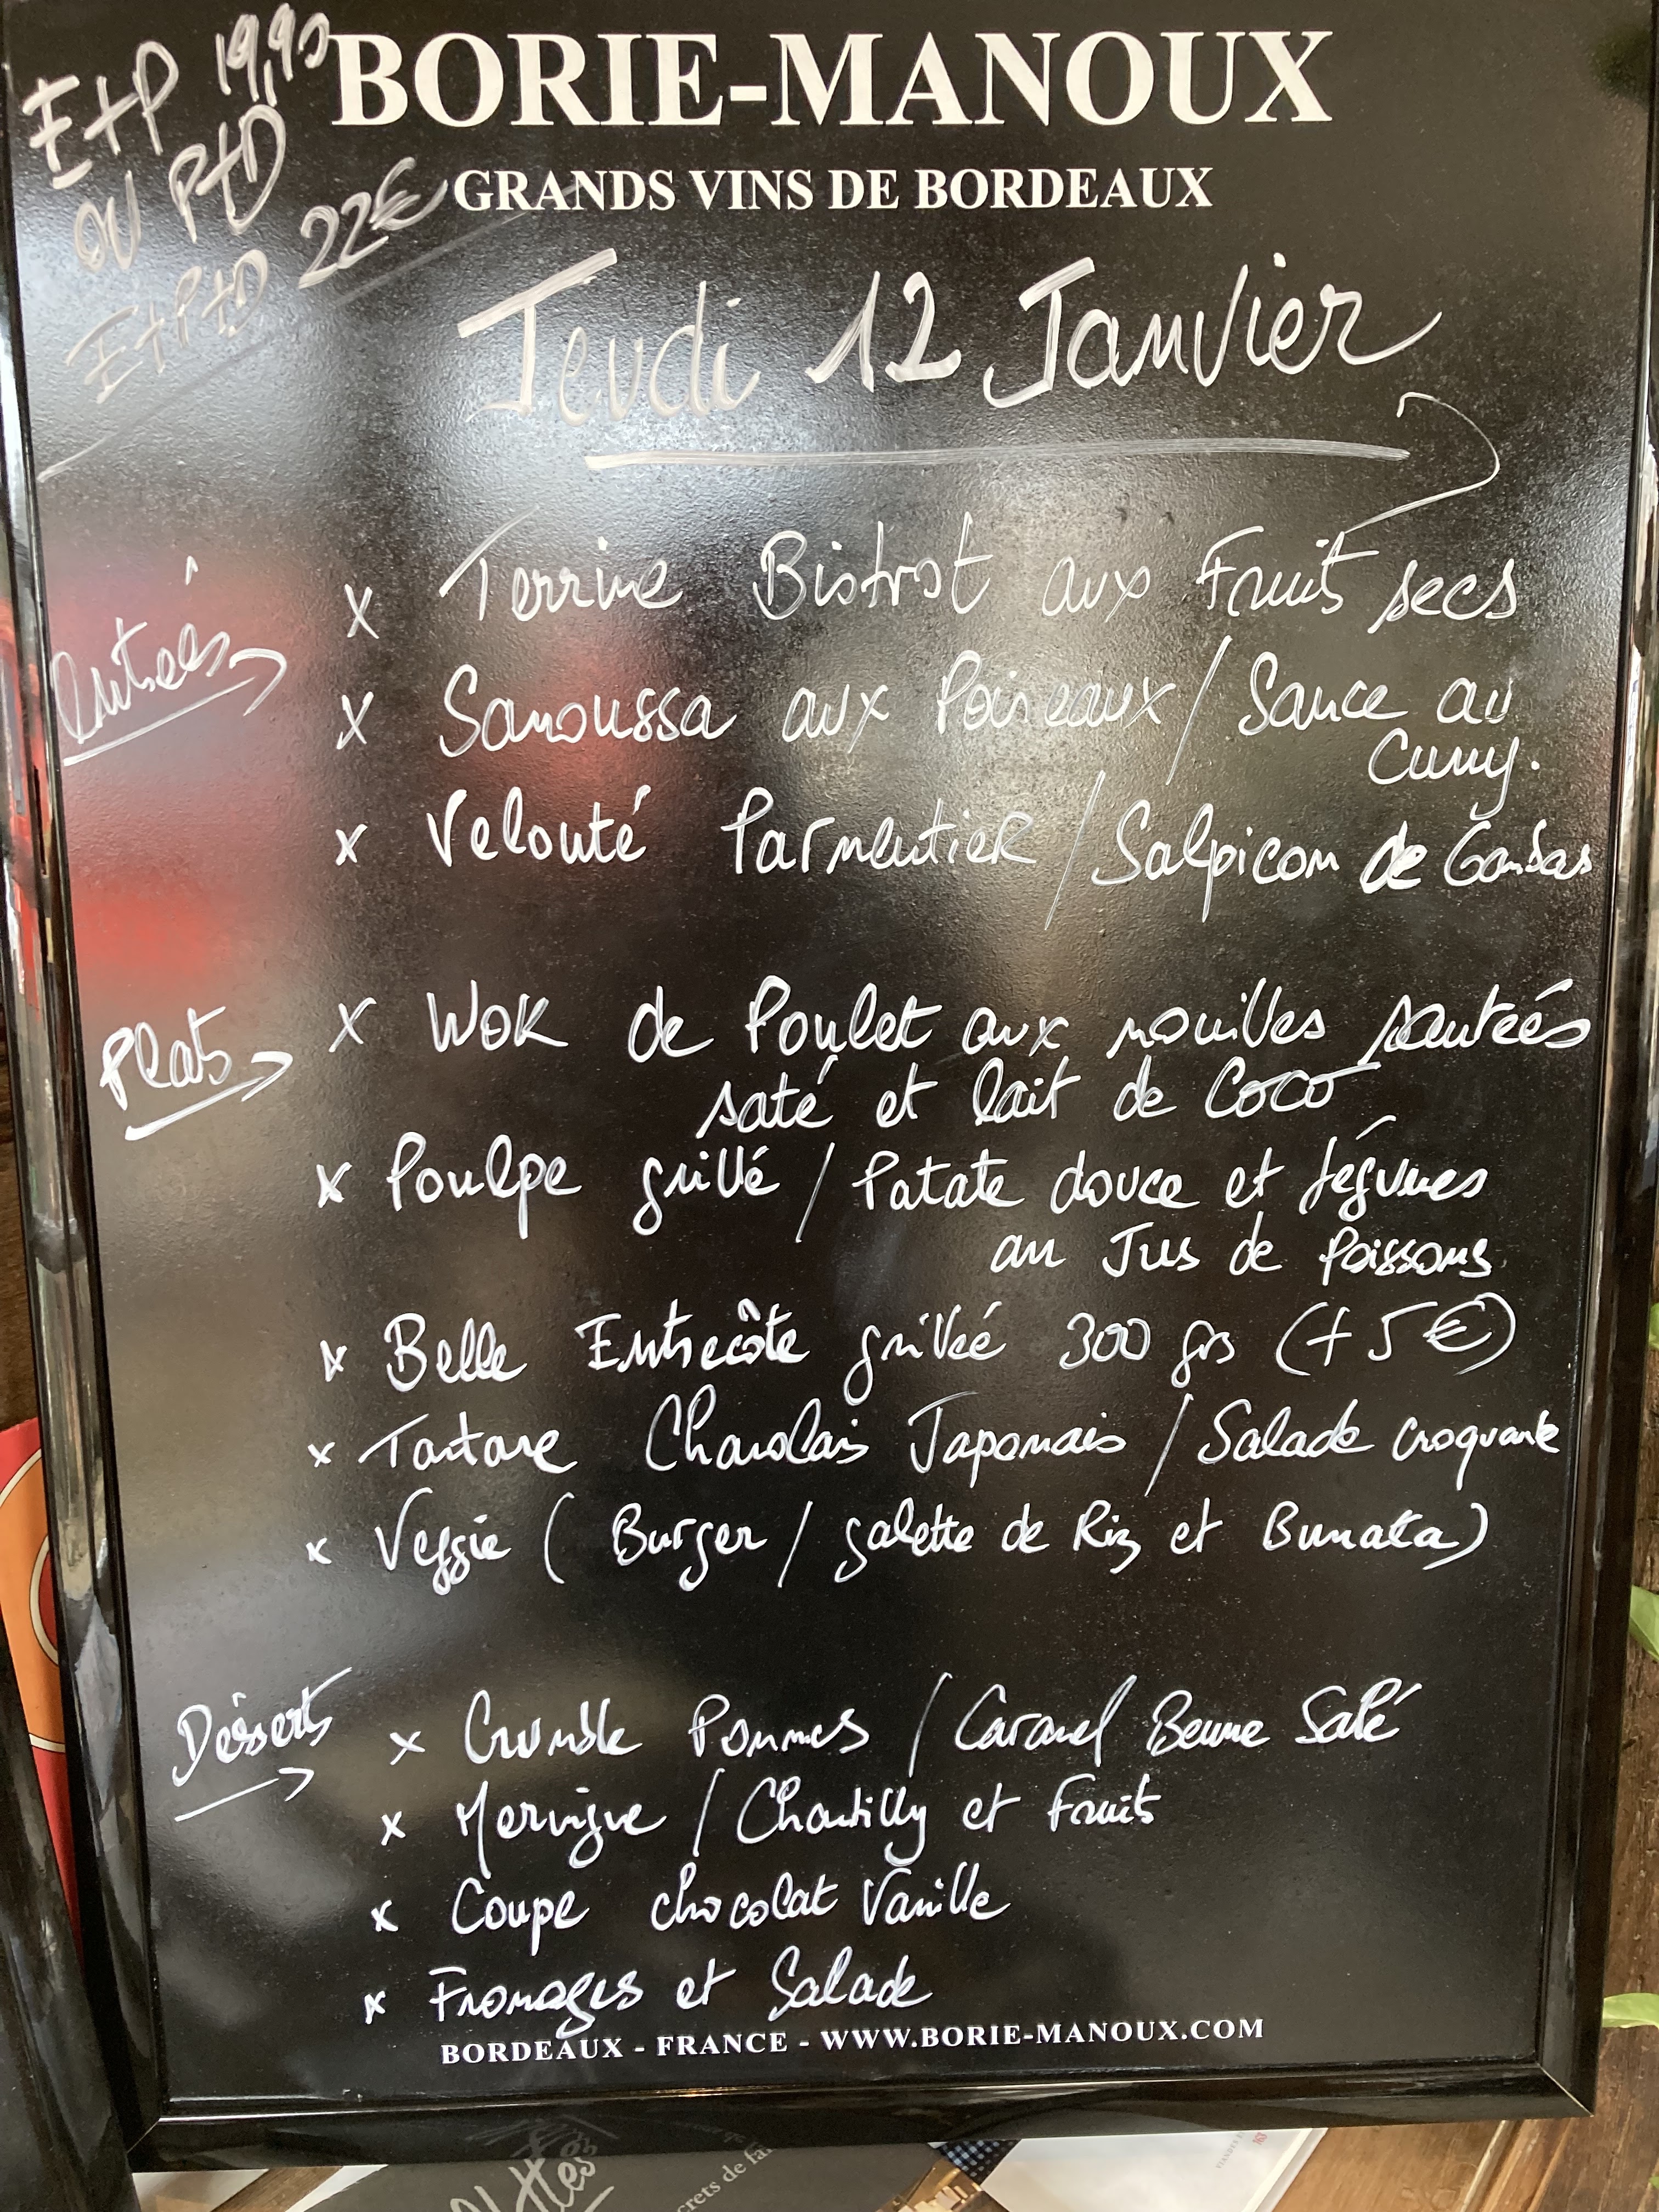 BORIE-MANOUX
GRANDS VINS DE BORDEAUX
E+P 19,90
OU P+D
E+P+D 22€
Jeudi 12 Janvier
Entrées
x Terrine Bistrot aux Fruits secs
x Samoussa aux Poireaux / Sauce au
Curry.
x Velouté Parmentier / Salpicon de Gambas
Plats
x Wok de Poulet aux nouilles sautées
saté et lait de Coco
x Poulpe grillé / Patate douce et légumes
au Jus de Poissons
x Belle Entrecôte grillée 300 grs (+5€)
x Tartare Charolais Japonais / Salade croquante
x Veggie (Burger / galette de Riz et Burrata)
Desserts
x Crumble Pommes / Caramel Beurre Salé
x Meringue / Chantilly et Fruits
x Coupe chocolat Vanille
x Fromages et Salade
BORDEAUX - FRANCE - WWW.BORIE-MANOUX.COM
crets de fa